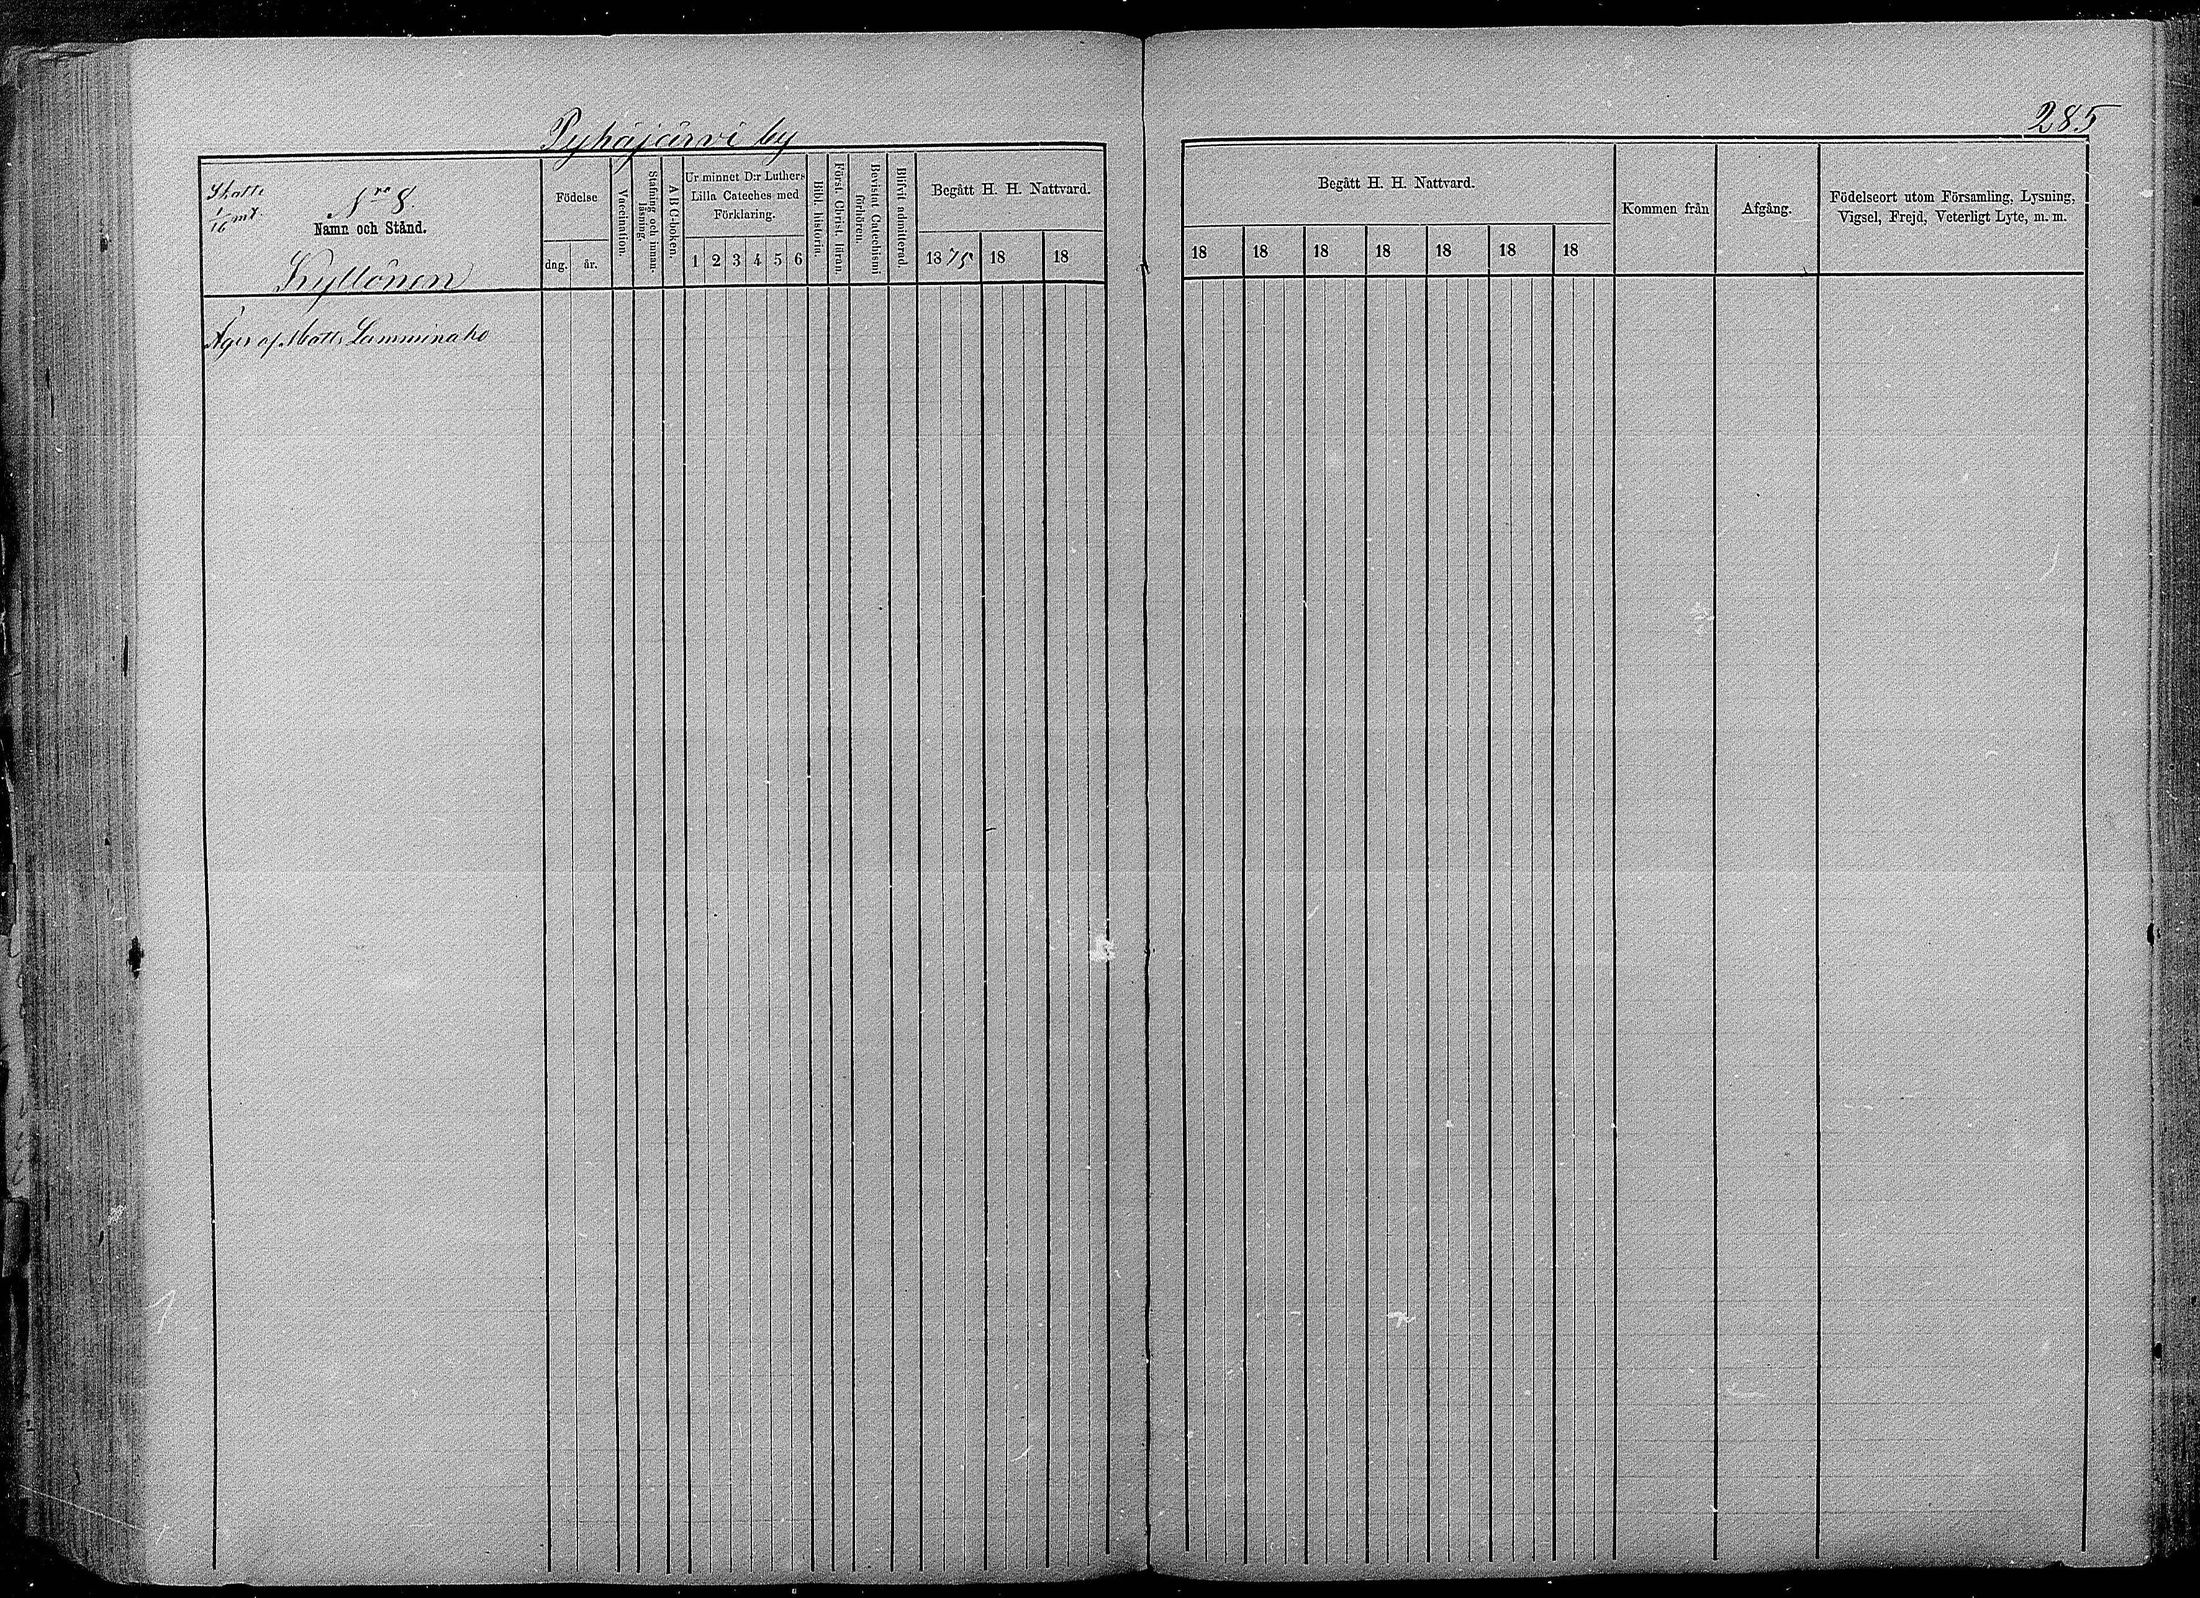 Pyhäjärvi by
285
Skatte
1/16 mt
N:ro 8.
Namn och Stånd.
Kyllönen
Födelse
dng. år.
Vaccination.
Stafning och innanläsning.
A B C-boken.
Ur minnet D:r Luthers
Lilla Cateches med
Förklaring.
1 2 3 4 5 6
Bibl. historia.
Först. Christ. läran.
Bevistat Catechismi förhören.
Blifvit admitterad.
Begått H. H. Nattvard.
1875 18 18
Begått H. H. Nattvard.
18 18 18 18 18 18 18
Kommen från
Afgång.
Födelseort utom Församling, Lysning,
Vigsel, Frejd, Veterligt Lyte, m. m.
Äges af Matts Lamminaho